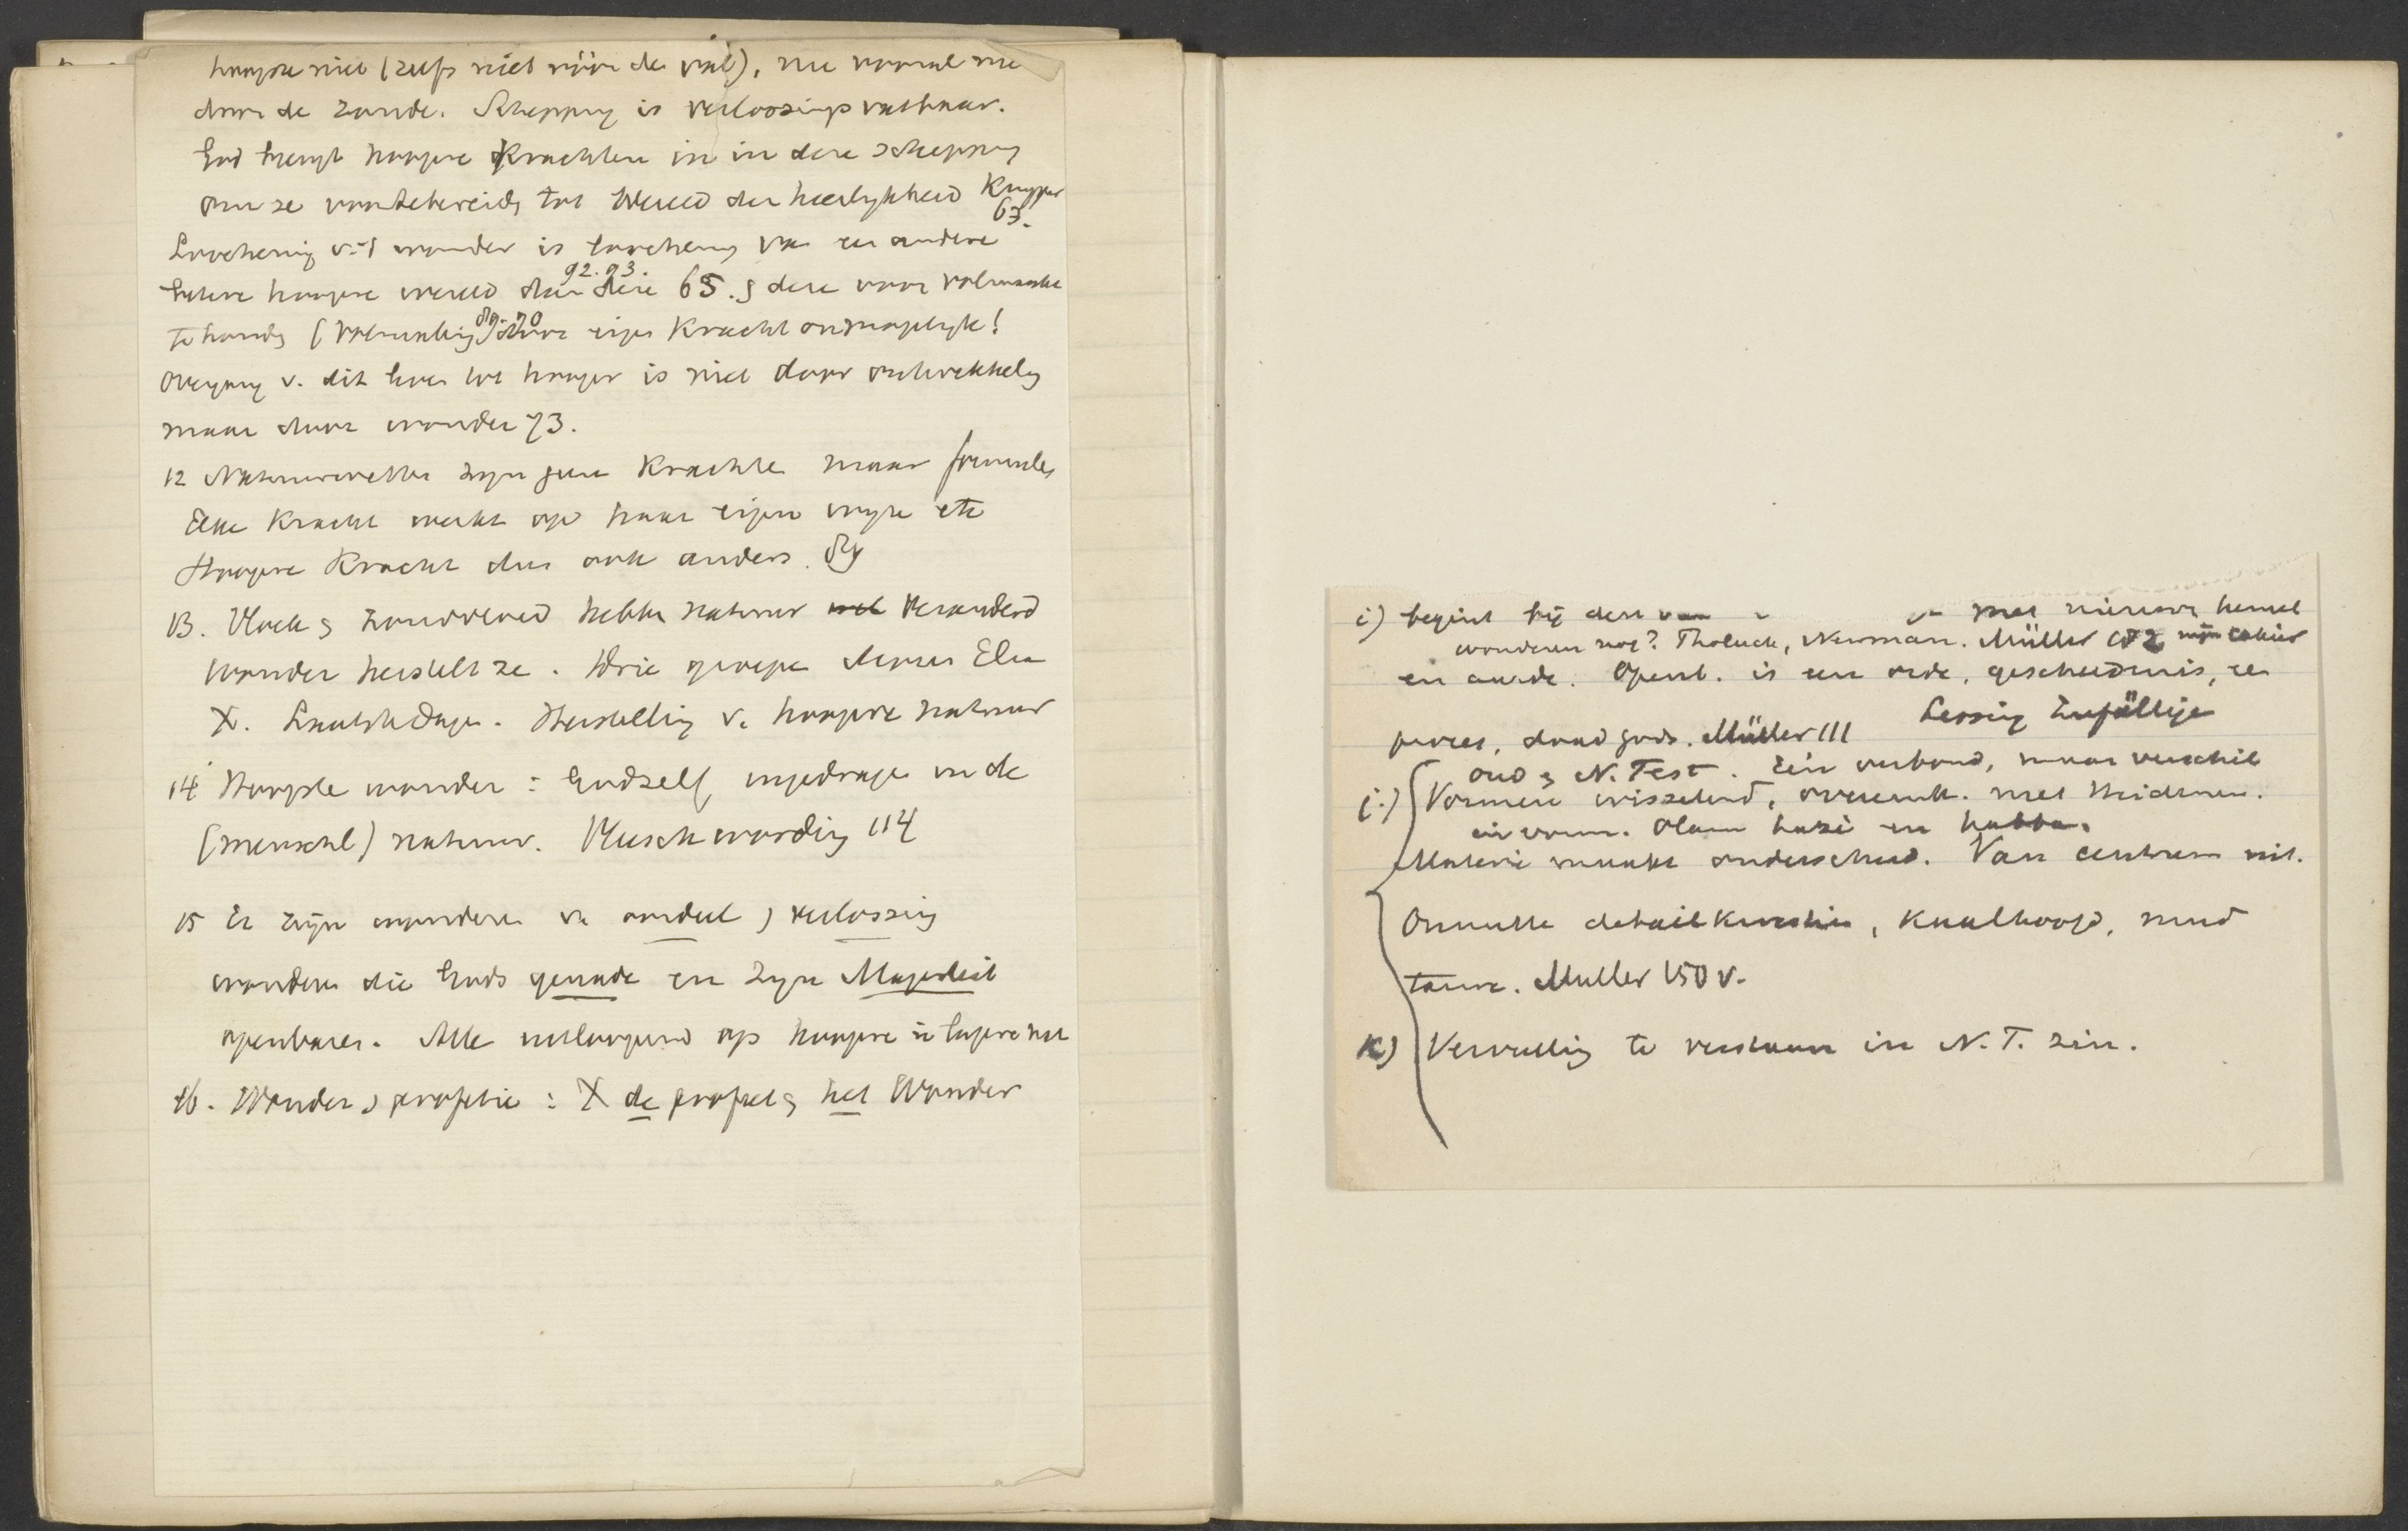 hoogste niet (zelfs niet vóór de val), nu vooral nie
door de zonde. Schepping is verlossings vatbaar.
God brengt hoogere krachten in in deze schepping
om ze voor te bereid tot wereld der heerlijkheid Kuyper 63.
Loochening v. 't wonder is loochening van een andere
betere hoogere wereld dan deze 65. 92.93. deze voor volmaakte
te houd (volmaking 89-90 door eigen kracht onmogelijk!
Overgang v. dit lever tot hooger is niet door ontwikkeling
maar door wonder 73.
12 Natuurwetten zijn geen krachten maar formules
Elke kracht werkt op haar eigen wijze etc
Hoogere kracht dus ook anders.
13. Vloek & zondvloed hebben natuur veranderd
Wonder herstelt ze. Drie groepen Mozes Elia
X. Laatste Dagen. Herstelling v. hoogere natuur
14 Hoogste wonder: God zelf, ingedragen in de
(menschl) natuur. Menschwording 114
15 Er zijn wonderen v. oordeel & verlossing
wonderen die Gods genade en zijn Majesteit
openbaren. Alle uitloopend op hoogere in lagere nat
16. Wonder & profetie: X de profeet & het Wonder
i) begint bij den van met nieuwe hemel
wonderen nog? Tholuck, Newman. Müller 172 mijn cahier
en aarde. Openb. is een orde, geschiedenis, een
proces, daad Gods. Müller 111 Lessing Zufällige
Oud & N. Test. Eén verbond, maar verschil
j.) Vormen wisselend, overeenk. met Heidenen.
in vorm. Olam hazè en habba.
Materie maakt onderscheid. Van centrum uit.
Onnutte detailkwestie, Kaalhoofd, rund
touw. Muller 150 v.
k) Vervulling te verstaan in N. T. zin.